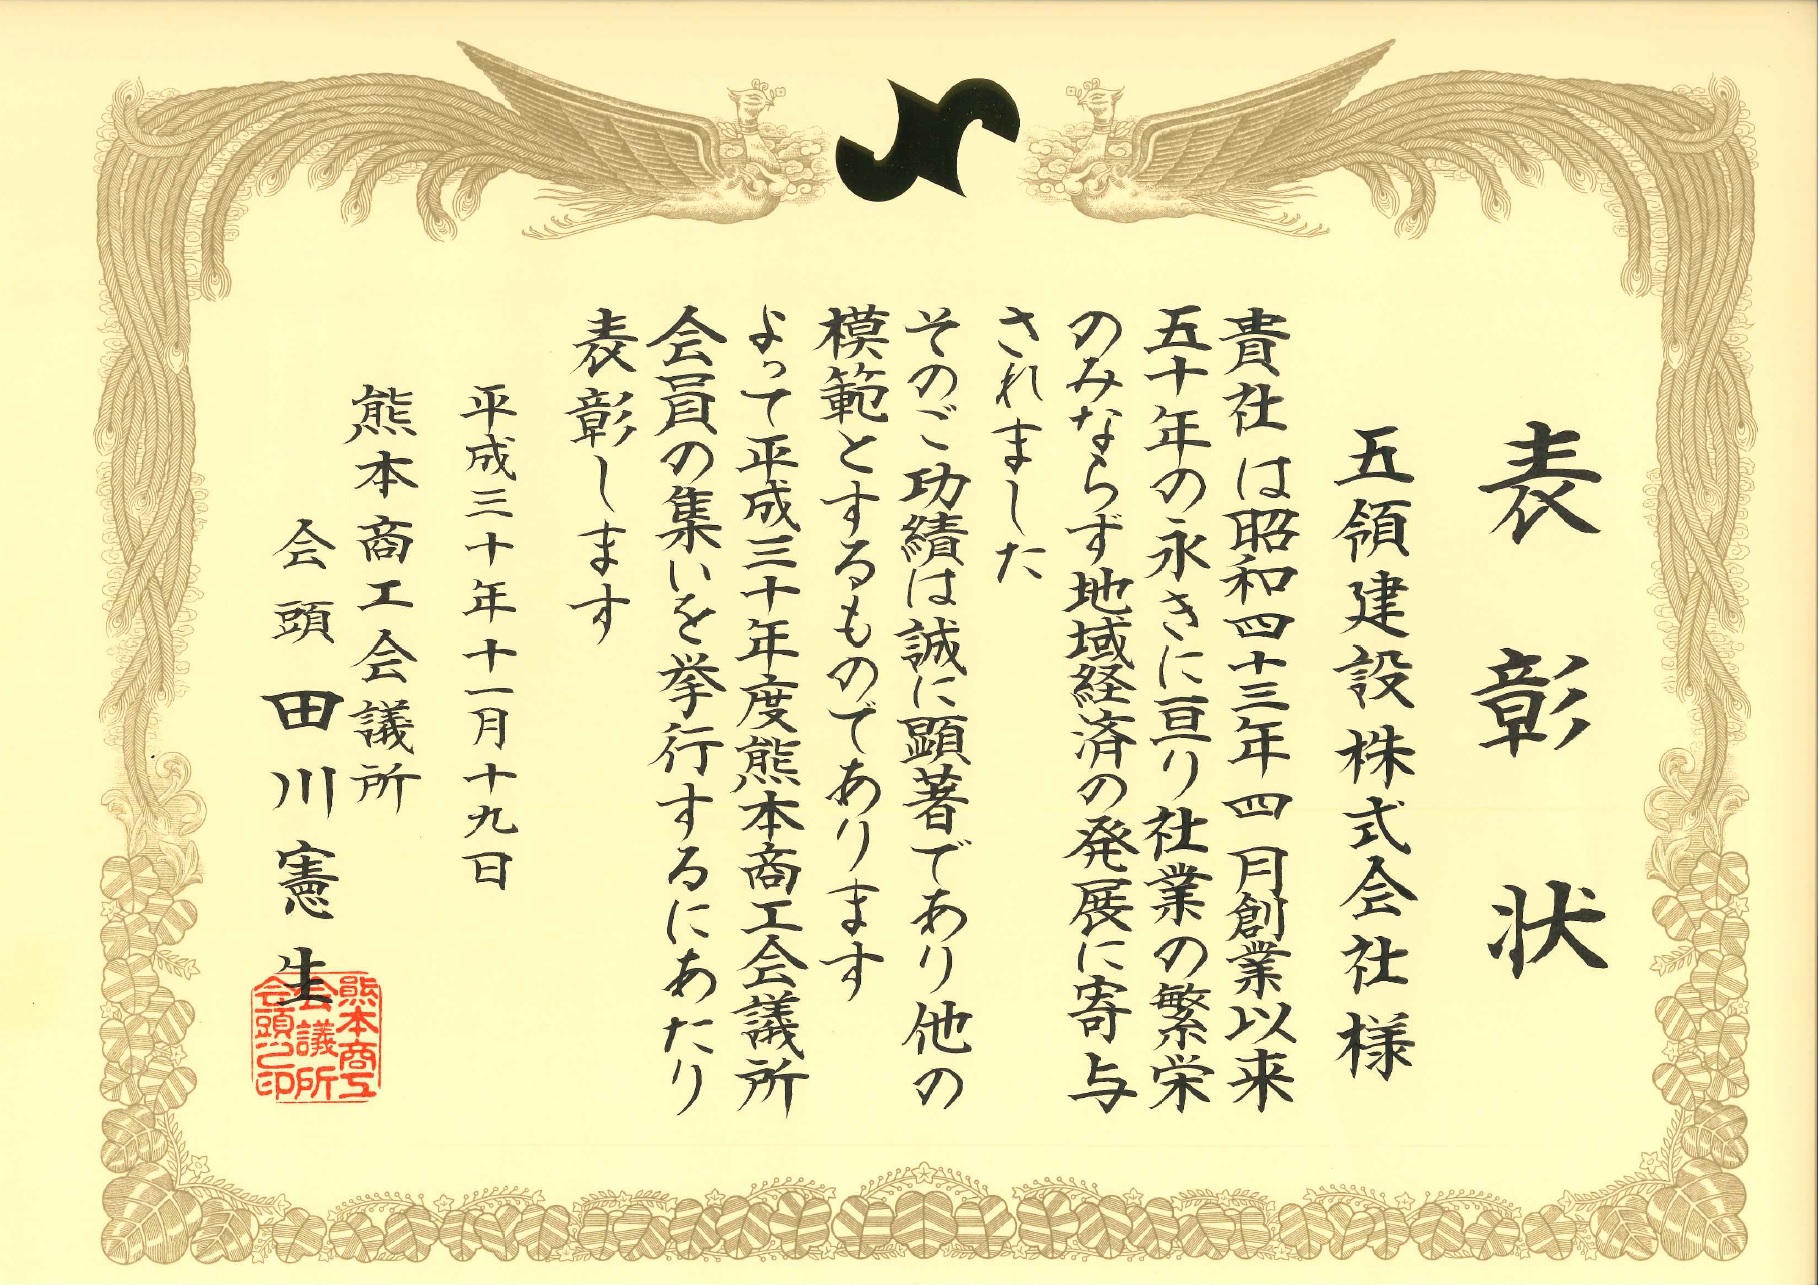 表彰状
五領建設株式会社様
貴社は昭和四十三年四月創業以来
五十年の永きに亘り社業の繁栄
のみならず地域経済の発展に寄与
されました
そのご功績は誠に顕著であり他の
模範とするものであります
よって平成三十年度熊本商工会議所
会員の集いを挙行するにあたり
表彰します
平成三十年十一月十九日
熊本商工会議所
会頭 田川憲生
熊本商工
会議所
会頭之印